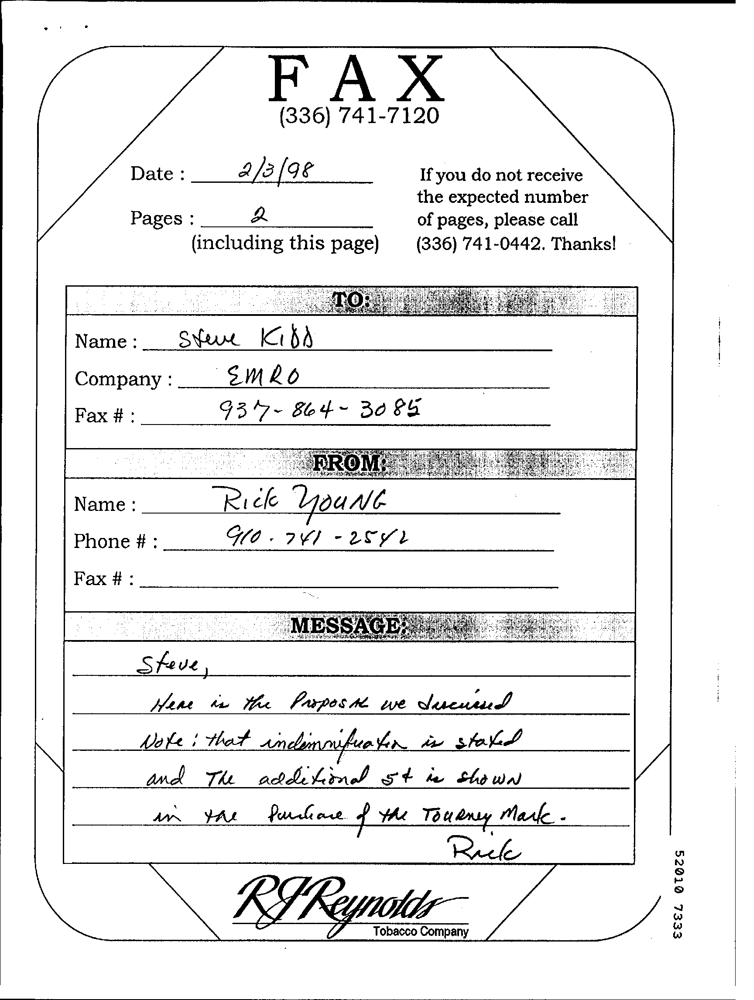 FAX
(336) 741-7120
Date : 2/3/98
Pages : 2
(including this page)
If you do not receive
the expected number
of pages, please call
(336) 741-0442. Thanks!
TO:
Name : Steve Kidd
Company : EMRO
Fax # : 937-864-3085
FROM:
Name : Rick Young
Phone # : 910-741-2542
Fax # :
MESSAGE:
Steve,
Here is the Proposal we discussed
Note : that indemnification is stated
and The additional is shown
in the Purchase of the Tourney Mark.
Rick
RJReynolds
Tobacco Company
52010 7333